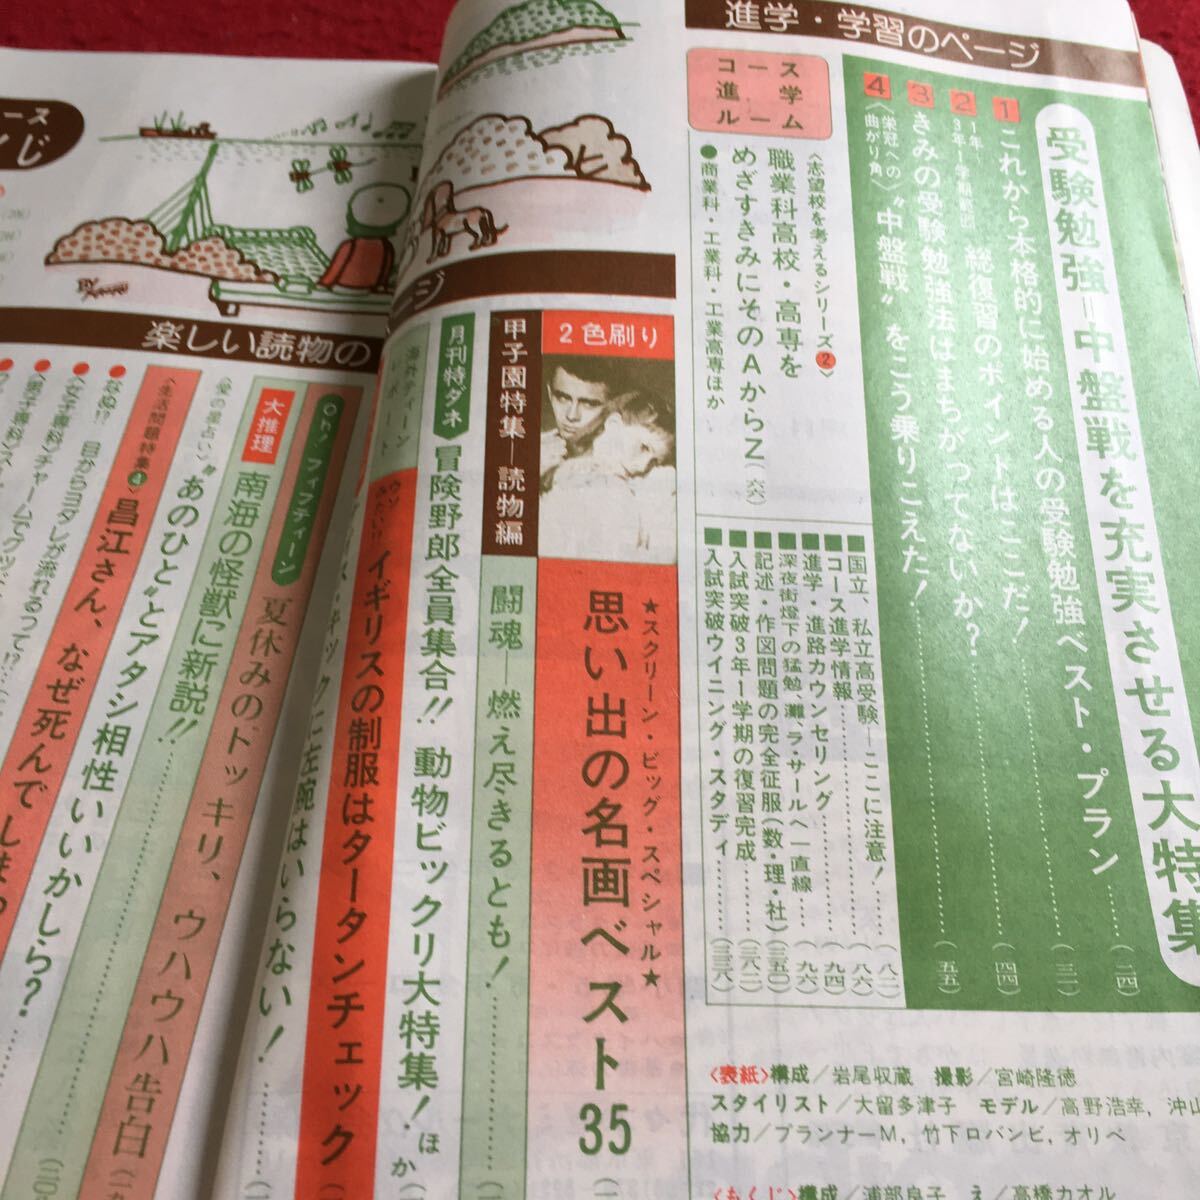 進学・学習のページ
受験勉強=中盤戦を充実させる大特集
1 これから本格的に始める人の受験勉強ベスト・プラン (二四)
2 1年〜3年1学期 総復習のポイントはここだ! (三一)
3 きみの受験勉強法はまちがってないか? (四四)
4 〈栄冠への曲がり角〉"中盤戦"をこう乗りこえた! (五五)
コース
進学
ルーム
〈志望校を考えるシリーズ2〉
職業科高校・高専を
めざすきみにそのAからZ (六六)
●商業科・工業科・工業高専ほか
■国立、私立高受験—ここに注意! (八二)
■コース進学情報 (八六)
■進学・進路カウンセリング (九四)
■深夜街燈下の猛勉、灘・ラ・サールへ一直線 (九六)
■記述・作図問題の完全征服(数・理・社) (三五〇)
■入試突破3年1学期の復習完成 (三八二)
■入試突破ウイニング・スタディ (三三八)
〈表紙〉構成/岩尾収蔵 撮影/宮崎隆徳
スタイリスト/大留多津子 モデル/高野浩幸,沖山
協力/プランナーM,竹下ロバンビ,オリベ
〈もくじ〉構成/浦部良子 え/高橋カオル
2色刷り
★スクリーン・ビッグ・スペシャル★
思い出の名画ベスト35
甲子園特集—読物編
闘魂—燃え尽きるとも!
月刊特ダネ
冒険野郎全員集合!! 動物ビックリ大特集! ほか
海外ティーンレポート
イギリスの制服はタータンチェック
に左腕はいらない!
楽しい読物の
ージ
Oh!フィフティーン
夏休みのドッキリ、ウハウハ告白
大推理
南海の怪獣に新説!!
〈愛の星占い〉"あのひと"とアタシ相性いいかしら?
〈生活問題特集4〉昌江さん、なぜ死んでしまっ
●ななぬ!? 目からヨダレが流れるって!?
●〈女子専科〉チャームでグッド
●〈男子専科〉
ース
くじ